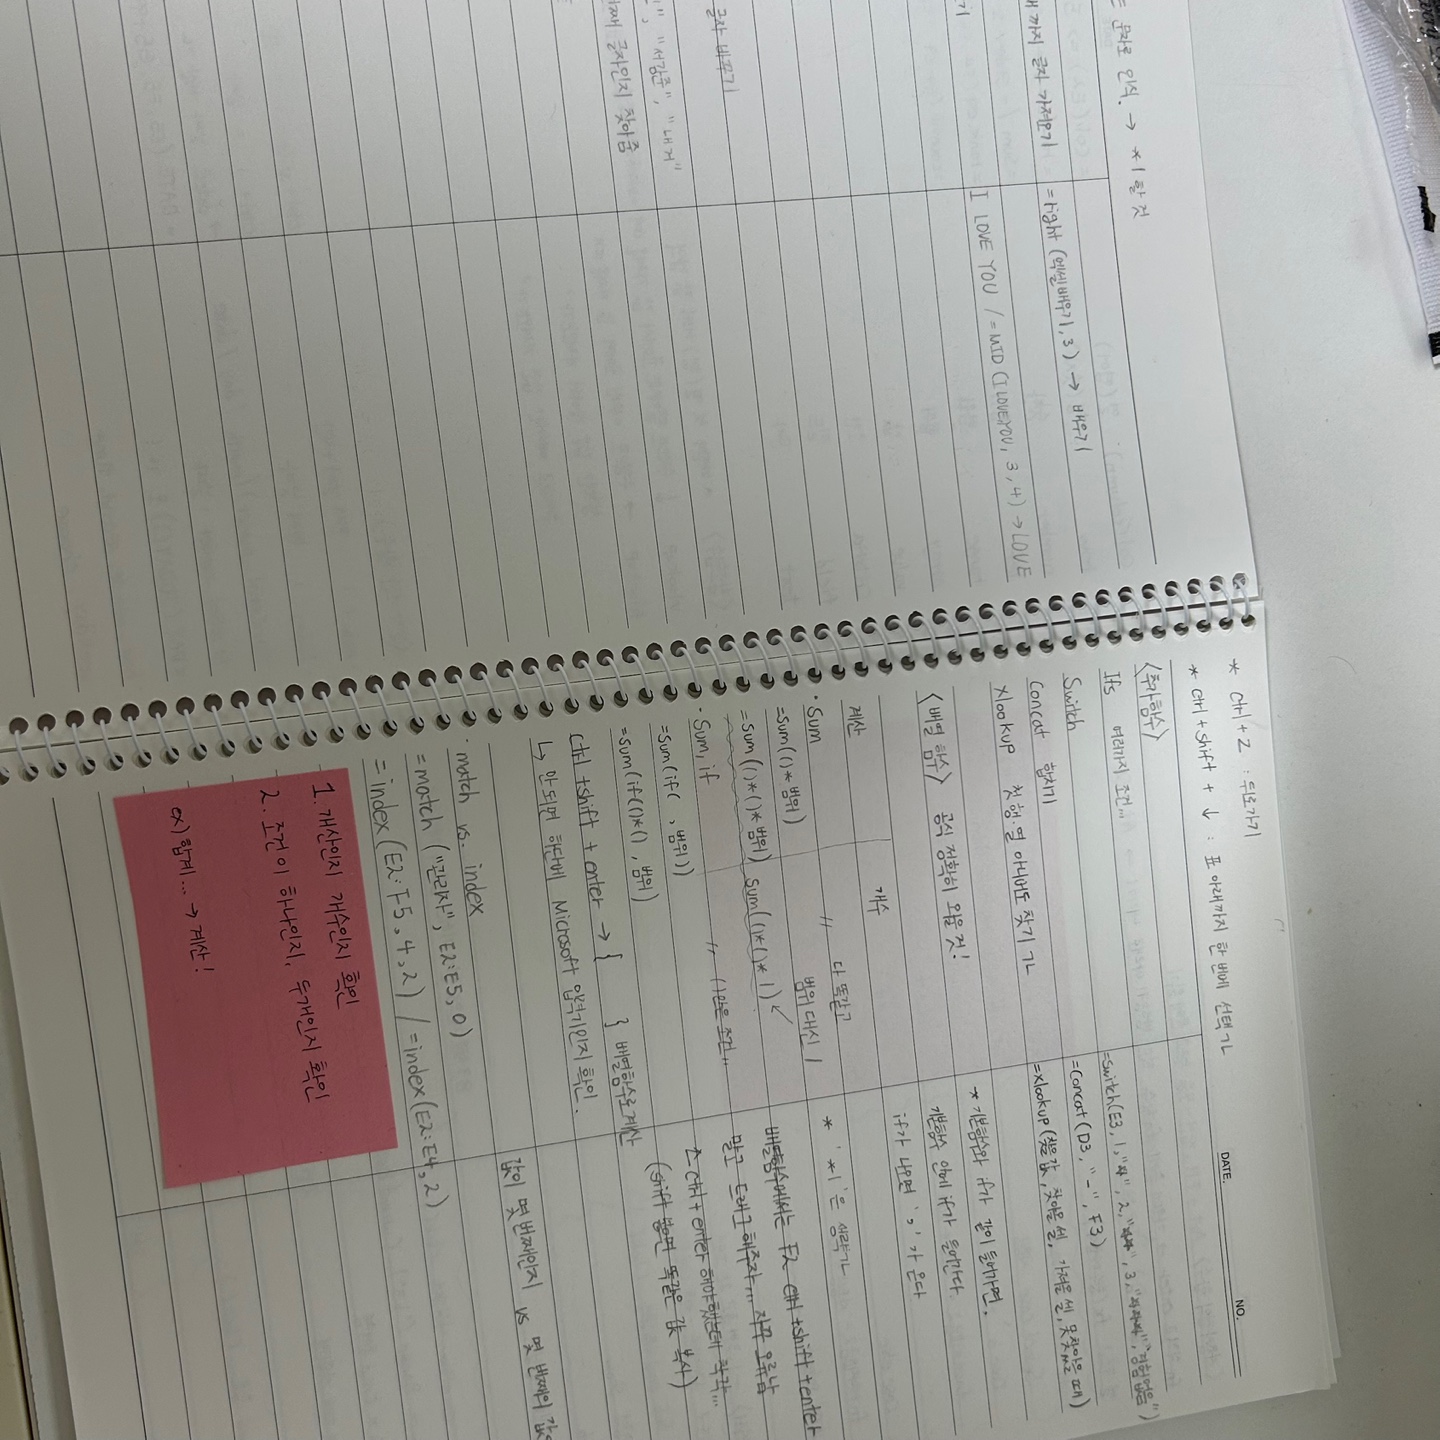 = 문자로 인식. → *1 할 것
까지 글자 가져오기
=right (엑셀배우기, 3) → 배우기
I LOVE YOU / =MID (I LOVEYOU, 3, 4) → LOVE
글자 바꾸기
"서강준", "내거"
째 글자인지 찾아줌
DATE.
NO.
* Ctrl + Z : 뒤로가기
* Ctrl + shift + ↓ : 표 아래까지 한 번에 선택 가능
<추가함수>
Ifs 여러가지 조건..
Switch
=Switch(E3, 1, "사", 2, "", 3, "", "경험없음")
Concat 합치기
=Concat (D3, "-", F3)
xlookup 첫 행·열 아니어도 찾기 가능
=xlookup (찾을 값, 찾아올 셀, 가져올 셀, 못 찾았을 때)
<배열 함수> 공식 정확히 외울 것!
* 기본함수와 if가 같이 들어가면.
기본함수 안에 if가 들어간다
if가 나오면 ','가 온다
계산
개수
· Sum
〃
다 똑같고
범위 대신 1
* '*1'은 생략가능
=Sum(()*범위)
=Sum(()*()*범위)
Sum(()*()*1)
배열함수에서는 F2 ctrl +shift +enter
말고 드래그 해주자... 자꾸 오류남
· Sum, if
〃
=Sum(if( , 범위))
=Sum(if(()*() , 범위)
Ctrl +shift + enter → { } 배열함수로 계산
↳ 안 되면 하단바 Microsoft 입력기인지 확인.
(shift 붙으면 똑같은 값 복사)
· match vs. index
값이 몇 번째인지 vs 몇 번째의 값
=match ("관리자", E2:E5, 0)
=index (E2:F5, 4, 2) / =index(E2:E4, 2)
1. 계산인지 개수인지 확인
2. 조건이 하나인지, 두개인지 확인
ex) 합계... → 계산!